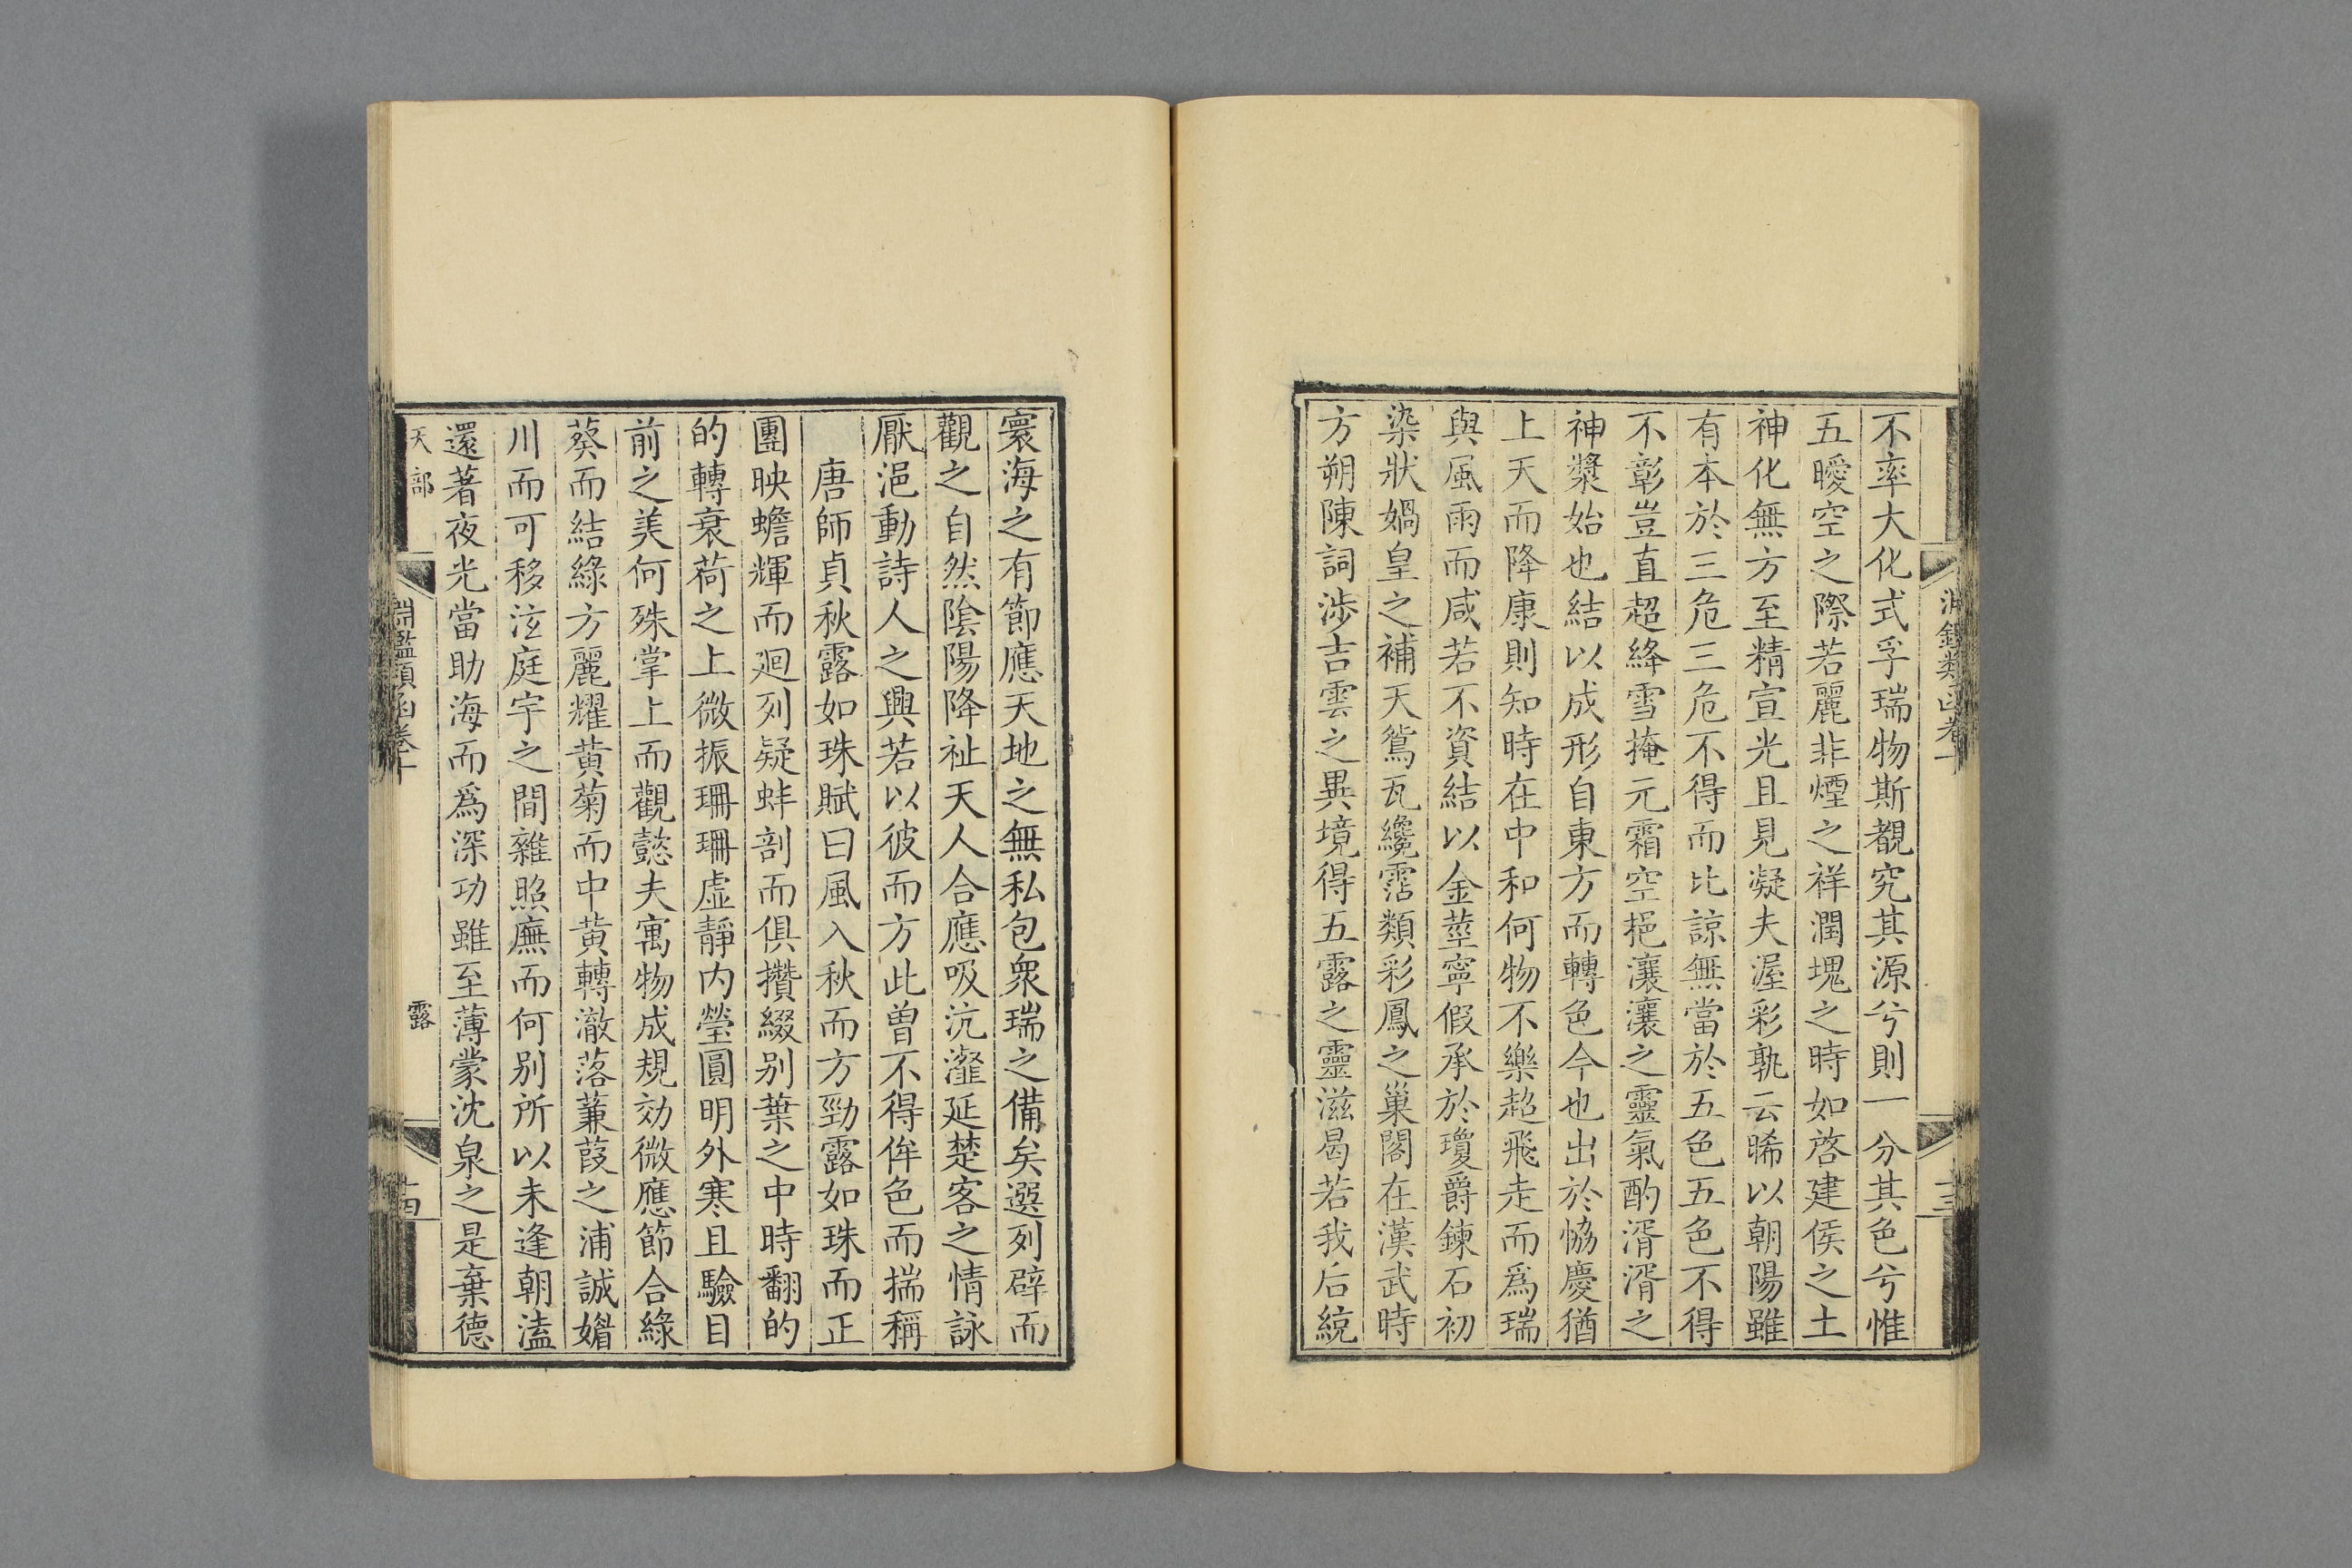 淵鑑類函卷十
十三
不率大化式孚瑞物斯覩究其源兮則一分其色兮惟
五曖空之際若麗非煙之祥潤塊之時如啓建侯之土
神化無方至精宣光且見凝夫渥彩孰云晞以朝陽雖
有本於三危三危不得而比諒無當於五色五色不得
不彰豈直超絳雪掩元霜空挹瀼瀼之靈氣酌湑湑之
神漿始也結以成形自東方而轉色今也出於恊慶猶
上天而降康則知時在中和何物不樂超飛走而爲瑞
與風雨而咸若不資結以金莖寧假承於瓊爵鍊石初
染狀媧皇之補天鴛瓦纔霑類彩鳳之巢閣在漢武時
方朔陳詞涉吉雲之異境得五露之靈滋曷若我后統
寰海之有節應天地之無私包衆瑞之備矣選列辟而
觀之自然陰陽降祉天人合應吸沆瀣延楚客之情詠
厭浥動詩人之興若以彼而方此曽不得侔色而揣稱
唐師貞秋露如珠賦曰風入秋而方勁露如珠而正
團映蟾輝而廻列疑蚌剖而俱攢綴别葉之中時翻的
的轉衰荷之上微振珊珊虛靜内瑩圓明外寒且驗目
前之美何殊掌上而觀懿夫寓物成規効微應節合綠
葵而結綠方麗耀黄菊而中黄轉澈落蒹葭之浦誠媚
川而可移泫庭宇之間雜照廡而何别所以未逢朝溘
還著夜光當助海而爲深功雖至薄蒙沈泉之是棄德
天部
淵鑑類函卷十
露
十四